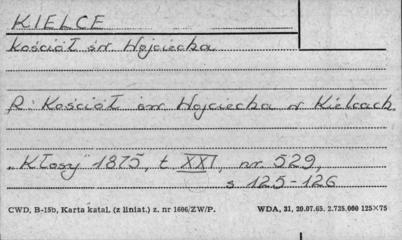 KIELCE
Kościół św. Wojciecha
R: Kościół św Wojciecha w Kielcach.
"Kłosy" 1875, t XXI, nr. 529,
s 125-126
CWD, B-15b, Karta katal. (z liniat.) z. nr 1606/ZW/P. WDA, 31, 20.07.65. 2.725.000 125×75